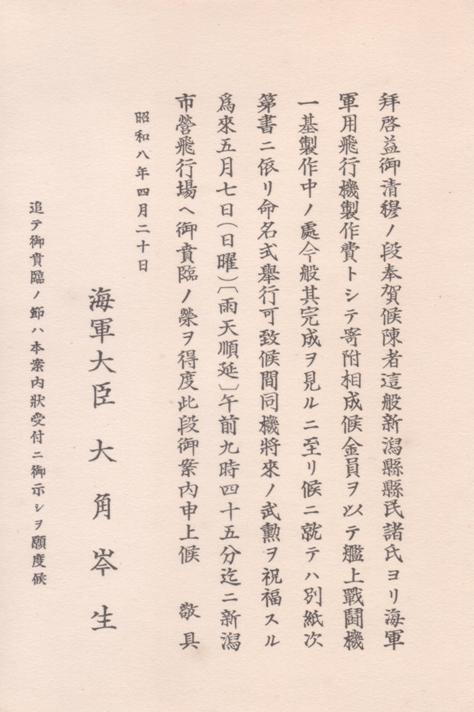 拜啓益御淸穆ノ段奉賀候陳者這般新潟縣縣民諸氏ヨリ海軍
軍用飛行機製作費トシテ寄附相成候金員ヲ以テ艦上戰鬪機
一基製作中ノ處今般其完成ヲ見ルニ至リ候ニ就テハ別紙次
第書ニ依リ命名式擧行可致候間同機將來ノ武勳ヲ祝福スル
爲來五月七日(日曜)〔雨天順延〕午前九時四十五分迄ニ新潟
市營飛行場ヘ御賁臨ノ榮ヲ得度此段御案內申上候　敬具
昭和八年四月二十日
海軍大臣 大角岑生
追テ御賁臨ノ節ハ本案內狀受付ニ御示シヲ願度候